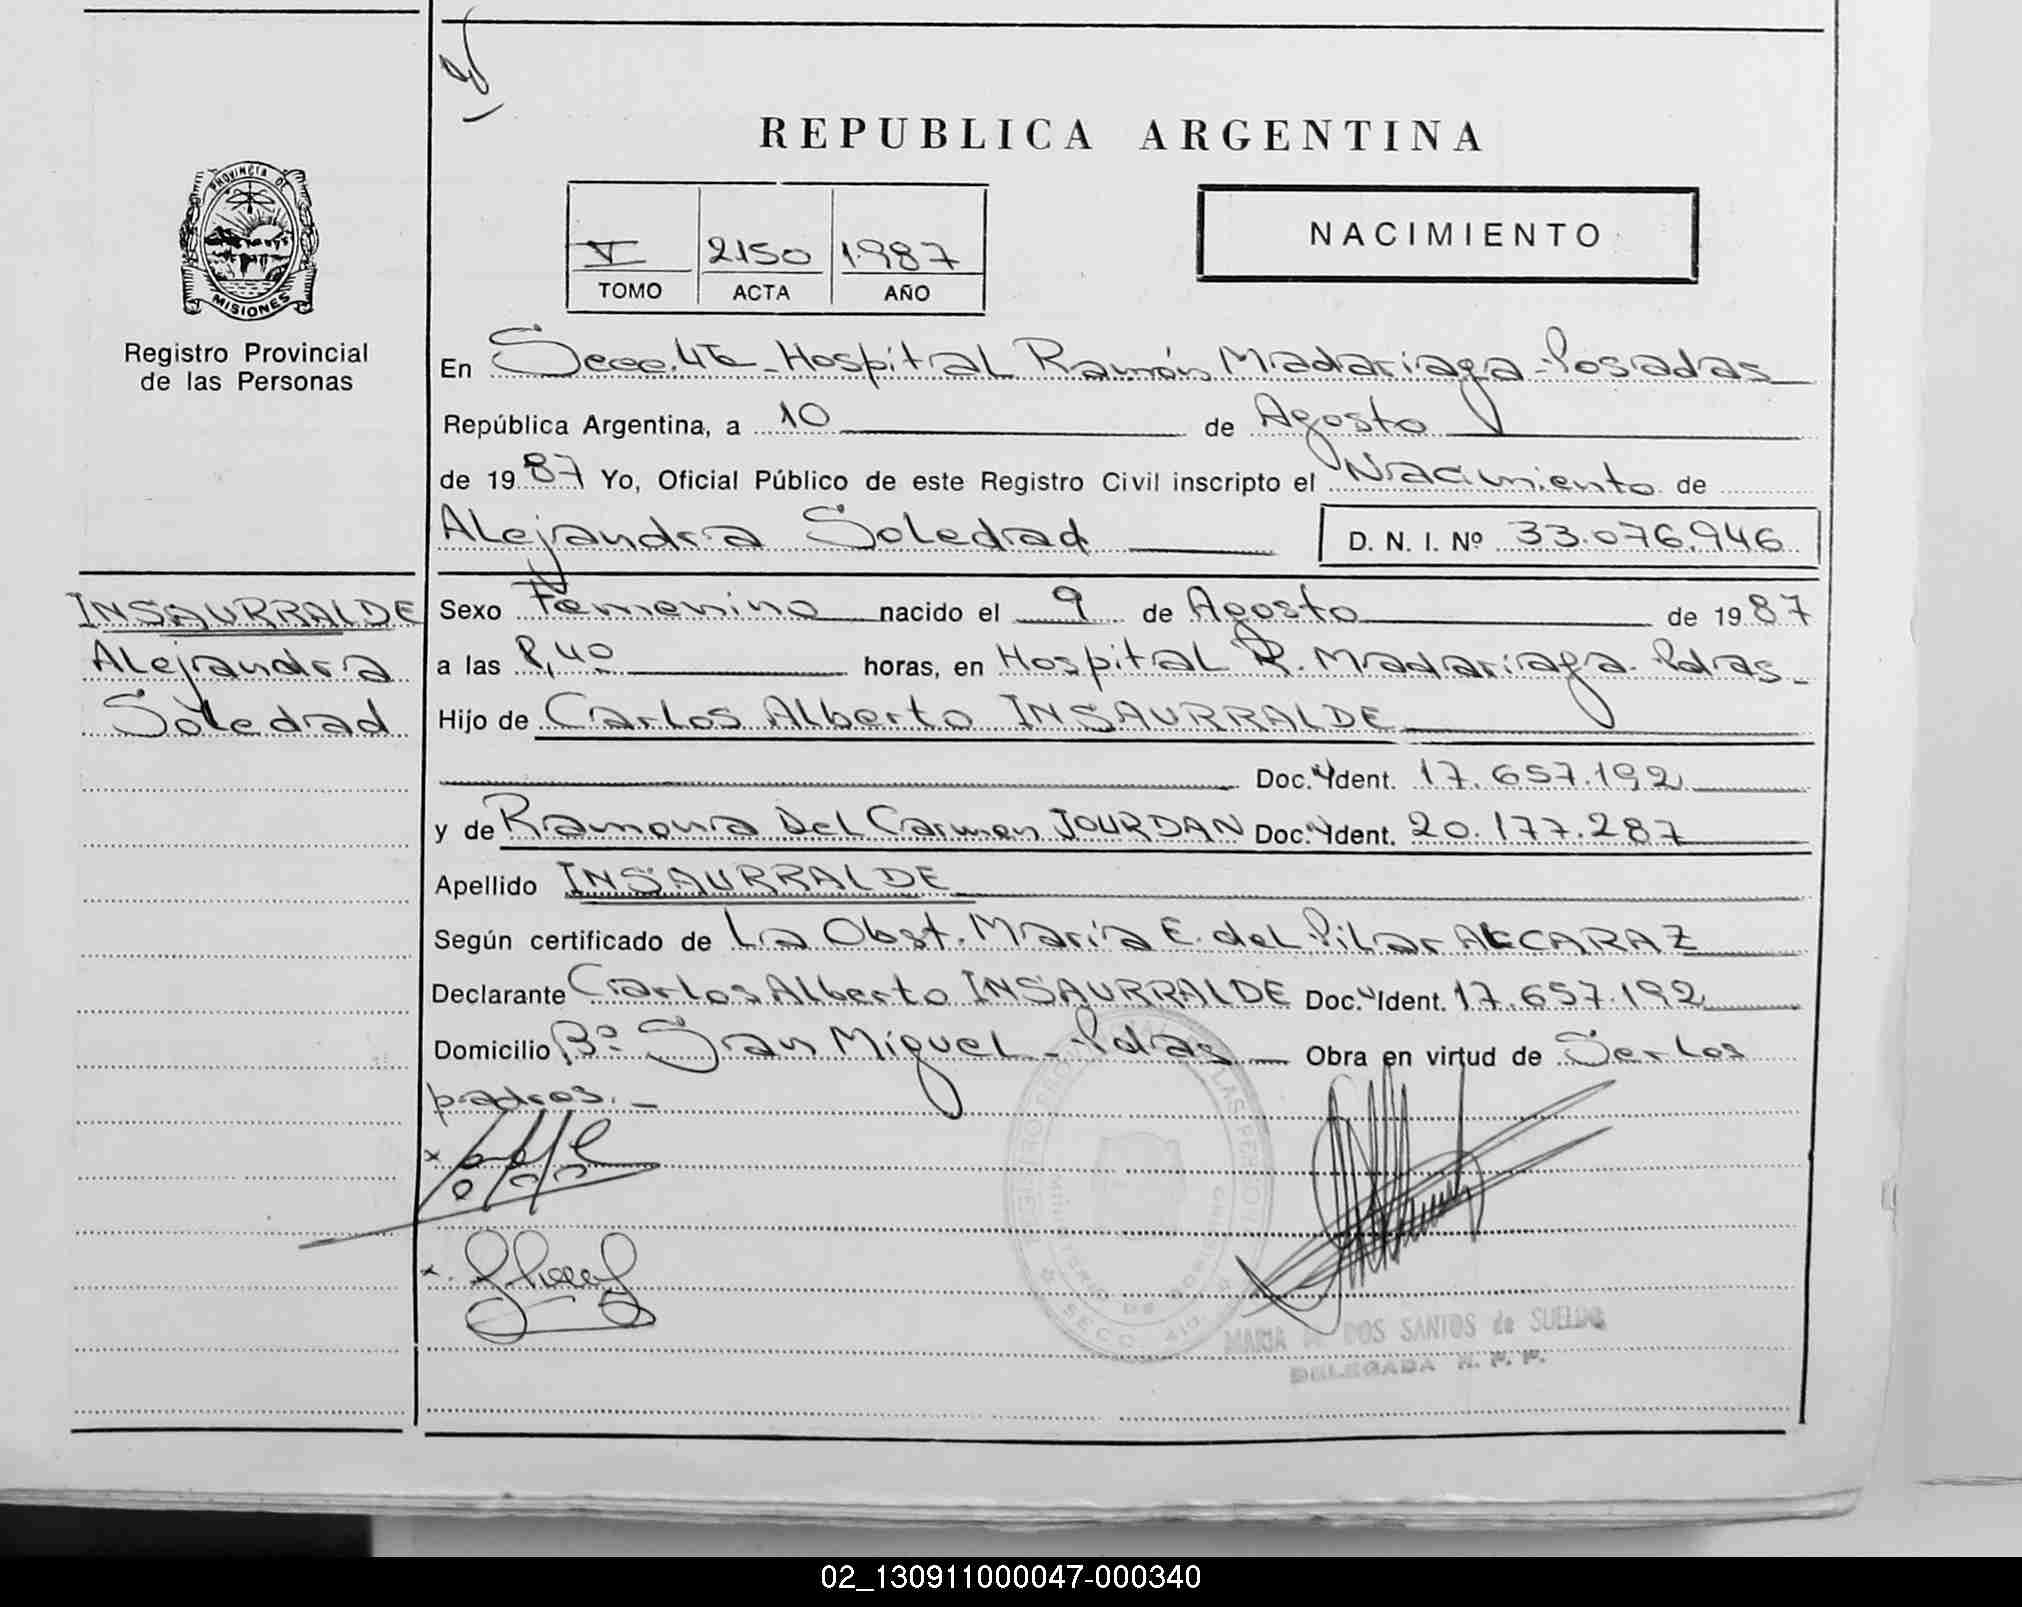 REPUBLICA ARGENTINA
PROVINCIA DE
MISIONES
Registro Provincial
de las Personas
V 2150 1987
TOMO ACTA AÑO
NACIMIENTO
En Secc. 4ta - Hospital Ramón Madariaga - Posadas
República Argentina, a 10 de Agosto
de 1987 Yo, Oficial Público de este Registro Civil inscripto el Nacimiento de
Alejandra Soledad D. N. I. Nº 33.076.946
INSAURRALDE
Alejandra
Soledad
Sexo Femenino nacido el 9 de Agosto de 1987
a las 8,40 horas, en Hospital R. Madariaga. Pdas -
Hijo de Carlos Alberto INSAURRALDE
Doc. Ident. 17.657.192
y de Ramona Del Carmen JOURDAN Doc. Ident. 20.177.287
Apellido INSAURRALDE
Según certificado de La Obst. María E. del Pilar ALCARAZ
Declarante Carlos Alberto INSAURRALDE Doc. Ident. 17.657.192
Domicilio Bº San Miguel - Pdas Obra en virtud de Ser los
padres. -
MARIA DOS SANTOS de
DELEGADA
02_130911000047-000340